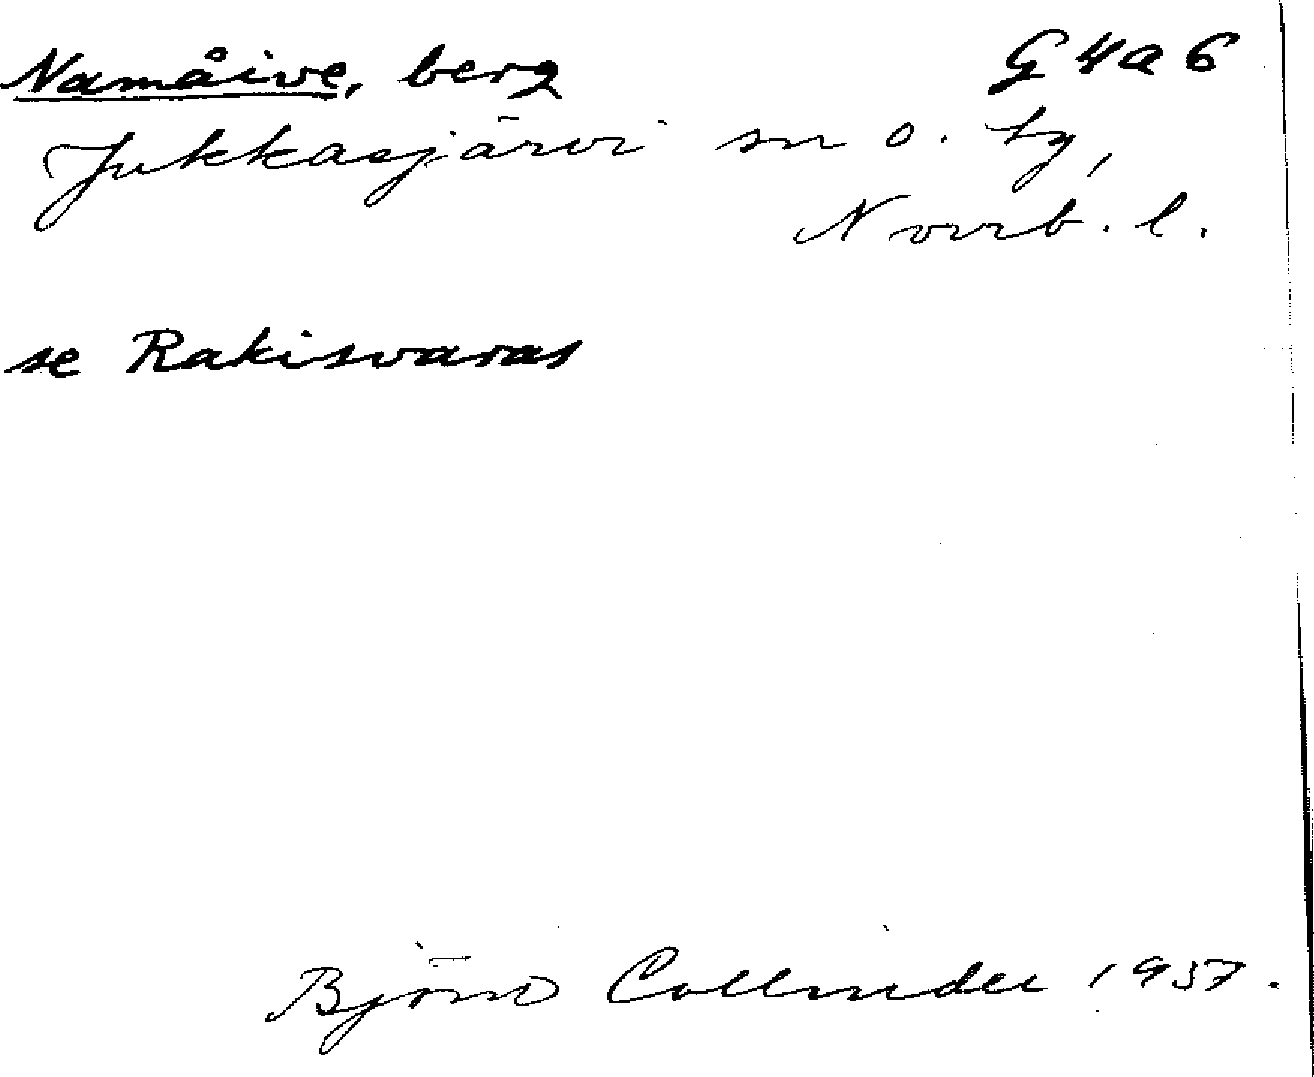 Namåive, berg G 4 a 6
Jukkasjärvi sn o. tg,
Norrb. l.
se Rakisvaras
Björn Collinder 1957.